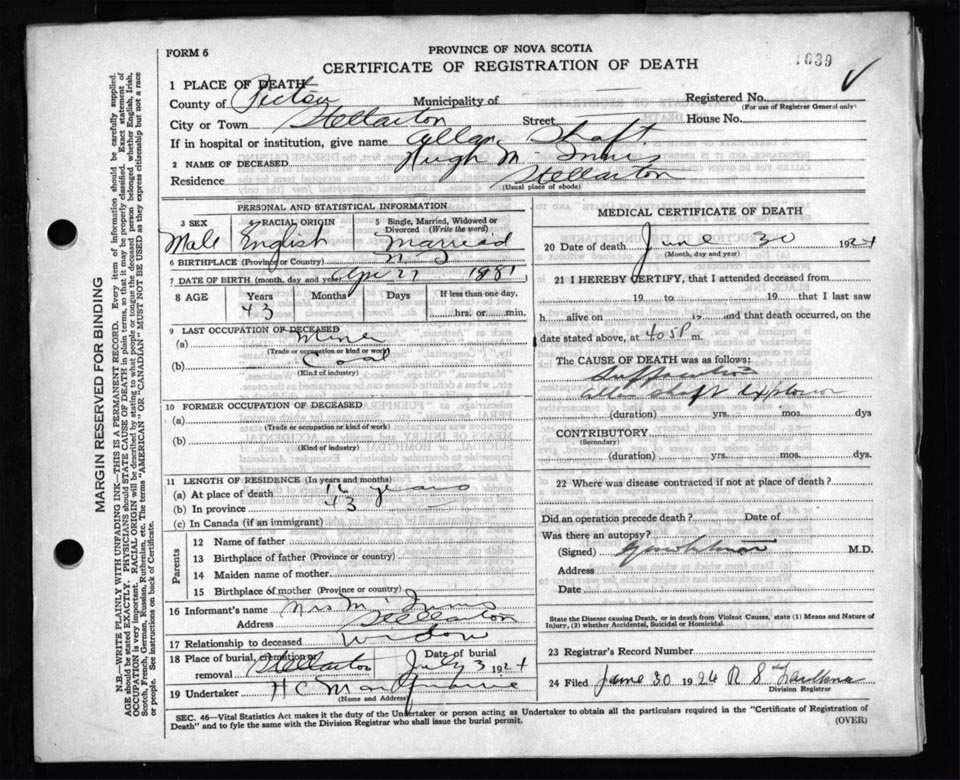 FORM 6
PROVINCE OF NOVA SCOTIA
1039
CERTIFICATE OF REGISTRATION OF DEATH
1 PLACE OF DEATH
County of Pictou Municipality of Registered No.
(For use of Registrar General only)
City or Town Stellarton Street House No.
If in hospital or institution, give name Allan Shaft.
2 NAME OF DECEASED Hugh Mc Innis
Residence Stellarton
(Usual place of abode)
PERSONAL AND STATISTICAL INFORMATION
3 SEX Male
4 RACIAL ORIGIN English
5 Single, Married, Widowed or Divorced (Write the word) Married
6 BIRTHPLACE (Province or Country) N S
7 DATE OF BIRTH (month, day and year) Apr 27 1881
8 AGE Years Months Days If less than one day,
43 hrs. or min.
9 LAST OCCUPATION OF DECEASED
(a) Miner
(Trade or occupation or kind or work)
(b) Coal
(Kind of industry)
10 FORMER OCCUPATION OF DECEASED
(a)
(Trade or occupation or kind of work)
(b)
(Kind of industry)
11 LENGTH OF RESIDENCE (In years and months)
(a) At place of death 16 years
(b) In province 43
(c) In Canada (if an immigrant)
Parents
12 Name of father
13 Birthplace of father (Province or country)
14 Maiden name of mother
15 Birthplace of mother (Province or country)
16 Informant's name Mrs Mc Innis
Address Stellarton
17 Relationship to deceased Widow
18 Place of burial, cremation or removal Stellarton Date of burial July 3 1924
19 Undertaker H C
(Name and Address)
MEDICAL CERTIFICATE OF DEATH
20 Date of death June 30 1924
(Month, day and year)
21 I HEREBY CERTIFY, that I attended deceased from
19 to 19 that I last saw
h alive on 19 and that death occurred, on
date stated above, at 405P m.
The CAUSE OF DEATH was as follows:
Suffocation
Allan Shaft Explosion
(duration) yrs. mos. dys
CONTRIBUTORY
(Secondary)
(duration) yrs. mos. dys.
22 Where was disease contracted if not at place of death?
Did an operation precede death? Date of
Was there an autopsy?
(Signed) M.D.
Address
Date
State the Disease causing Death, or in death from Violent Causes, state (1) Means and Nature of
Injury, (2) whether Accidental, Suicidal or Homicidal.
23 Registrar's Record Number
24 Filed June 30 1924 R S
Division Registrar
SEC. 46—Vital Statistics Act makes it the duty of the Undertaker or person acting as Undertaker to obtain all the particulars required in the "Certificate of Registration of
Death" and to fyle the same with the Division Registrar who shall issue the burial permit.
(OVER)
MARGIN RESERVED FOR BINDING
N.B.—WRITE PLAINLY WITH UNFADING INK—THIS IS A PERMANENT RECORD. Every item of information should be carefully supplied.
AGE should be stated EXACTLY. PHYSICIANS should STATE CAUSE OF DEATH in plain terms, so that it may be properly classified. Exact statement of
OCCUPATION is very important. RACIAL ORIGIN will be described by stating to what people or tongue the deceased person belongs whether English, Irish,
Scotch, French, German, Russian, Ruthenian, etc. The terms "AMERICAN" OR "CANADIAN" MUST NOT BE USED as they express citizenship but not a race
or people. See instructions on back of Certificate.